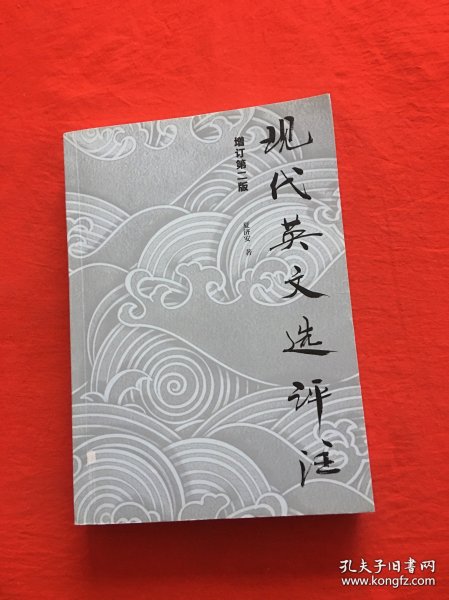 现代英文选评注
增订第二版
夏济安 著
孔夫子旧书网
www.kongfz.com